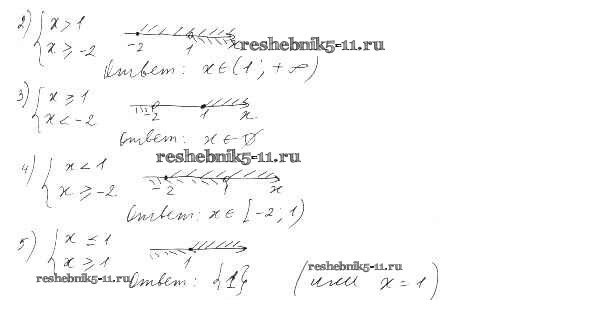 2) { x > 1
x ≥ -2
-2 1 x
reshebnik5-11.ru
Ответ: x ∈ (1; +∞)
3) { x ≥ 1
x < -2
-2 1 x
Ответ: x ∈ ∅
reshebnik5-11.ru
4) { x < 1
x ≥ -2
-2 1 x
Ответ: x ∈ [-2; 1)
5) { x ≤ 1
x ≥ 1
1
reshebnik5-11.ru
Ответ: {1} (или x = 1)
reshebnik5-11.ru